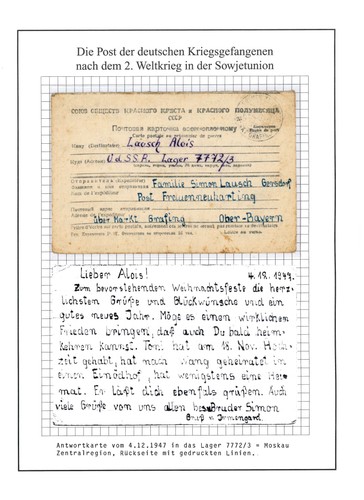 Die Post der deutschen Kriegsgefangenen
nach dem 2. Weltkrieg in der Sowjetunion
СОЮЗ ОБЩЕСТВ КРАСНОГО КРЕСТА и КРАСНОГО ПОЛУМЕСЯЦА
СССР
Почтовая карточка военнопленному
Carte postale au prisonnier de guerre
Кому (Destinataire) Lausch Alois
Куда (Adresse) UdSSR. Lager 7772/3
Familie Simon Lausch Gersdorf
Post Frauenneuharting
über Markt Grafing Ober-Bayern
Lieber Alois! 4.12.1947.
Zum bevorstehenden Weihnachtsfeste die herz-
lichsten Grüße und Glückwünsche und ein
gutes neues Jahr. Möge es einen wirklichen
Frieden bringen, daß auch Du bald heim-
kehren kannst. Toni hat am 18. Nov. Hoch-
zeit gehabt, hat nach Wang geheiratet in
einen Einödhof, hat wenigstens eine Hei-
mat. Er läßt dich ebenfalls grüßen. Auch
viele Grüße von uns allen bes. Bruder Simon
Gruß v. Irmengard.
Antwortkarte vom 4.12.1947 in das Lager 7772/3 = Moskau
Zentralregion, Rückseite mit gedruckten Linien.